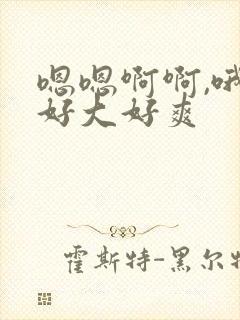 嗯嗯啊啊,哦
好大好爽
霍斯特-黑尔特